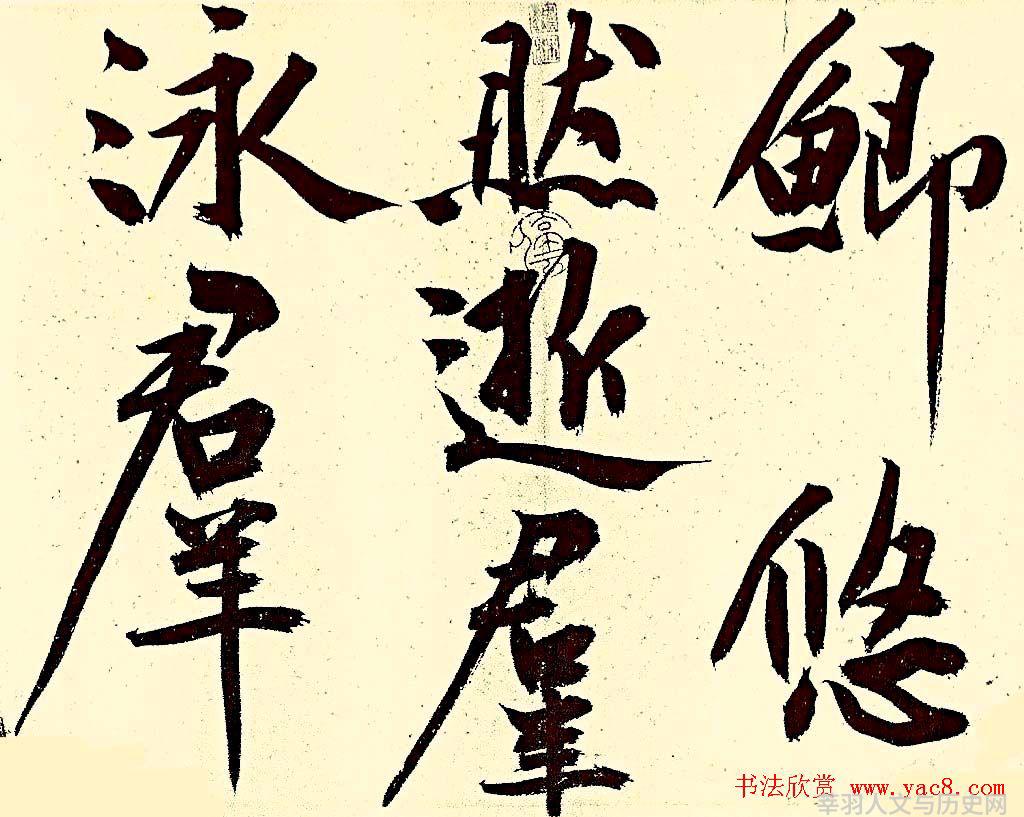 鲫悠
然逝羣
泳羣
书法欣赏 www.yac8.com
幸羽人文与历史网